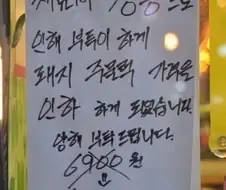 인해 부득이 하게
돼지 주물럭 가격을
인하 하게 되었습니다.
양해 부탁드립니다.
6900 원